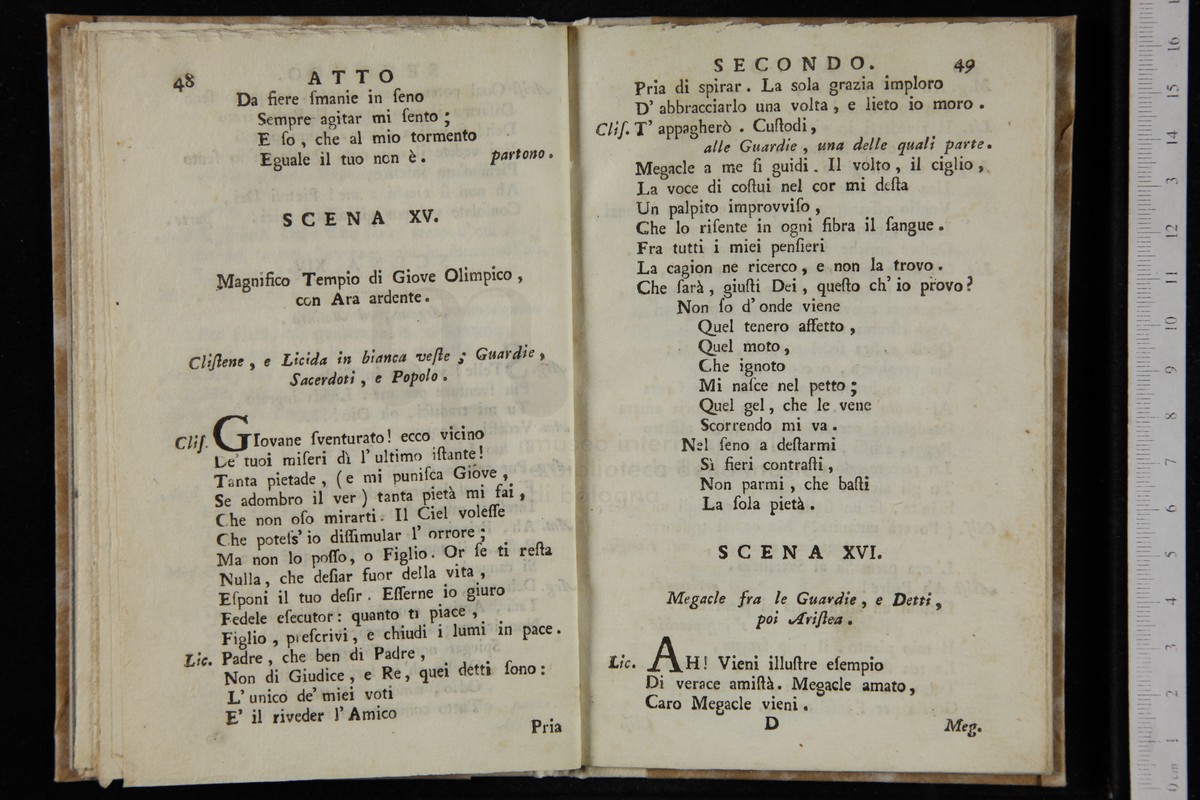 48 ATTO
Da fiere ſmanie in ſeno
Sempre agitar mi ſento ;
E ſo , che al mio tormento
Eguale il tuo non è . partono .
SCENA XV.
Magnifico Tempio di Giove Olimpico ,
con Ara ardente .
Cliſtene , e Licida in bianca veſte ; Guardie ,
Sacerdoti , e Popolo .
Cliſ. GIovane ſventurato ! ecco vicino
De' tuoi miſeri dì l' ultimo iſtante !
Tanta pietade , ( e mi puniſca Giove ,
Se adombro il ver ) tanta pietà mi fai ,
Che non oſo mirarti . Il Ciel voleſſe
Che poteſs' io diſſimular l' orrore ;
Ma non lo poſſo , o Figlio . Or ſe ti reſta
Nulla , che deſiar fuor della vita ,
Eſponi il tuo deſir . Eſſerne io giuro
Fedele eſecutor : quanto ti piace ,
Figlio , preſcrivi , e chiudi i lumi in pace .
Lic. Padre , che ben di Padre ,
Non di Giudice , e Re , quei detti ſono :
L' unico de' miei voti
E' il riveder l' Amico
Pria
SECONDO. 49
Pria di spirar . La sola grazia imploro
D' abbracciarlo una volta , e lieto io moro .
Cliſ. T' appagherò . Cuſtodi ,
alle Guardie , una delle quali parte .
Megacle a me ſi guidi . Il volto , il ciglio ,
La voce di coſtui nel cor mi deſta
Un palpito improvviſo ,
Che lo riſente in ogni fibra il ſangue .
Fra tutti i miei penſieri
La cagion ne ricerco , e non la trovo .
Che ſarà , giuſti Dei , queſto ch' io provo ?
Non ſo d' onde viene
Quel tenero affetto ,
Quel moto ,
Che ignoto
Mi naſce nel petto ;
Quel gel , che le vene
Scorrendo mi va .
Nel ſeno a deſtarmi
Sì fieri contraſti ,
Non parmi , che baſti
La ſola pietà .
SCENA XVI.
Megacle fra le Guardie , e Detti ,
poi Ariſtea .
Lic. AH ! Vieni illuſtre eſempio
Di verace amiſtà . Megacle amato ,
Caro Megacle vieni .
D Meg.